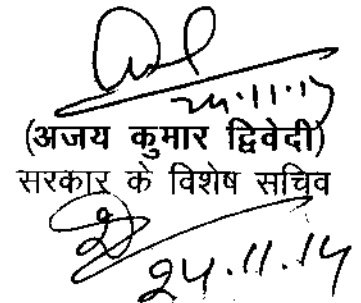 24.11.14
(अजय कुमार द्विवेदी)
सरकार के विशेष सचिव
24.11.14